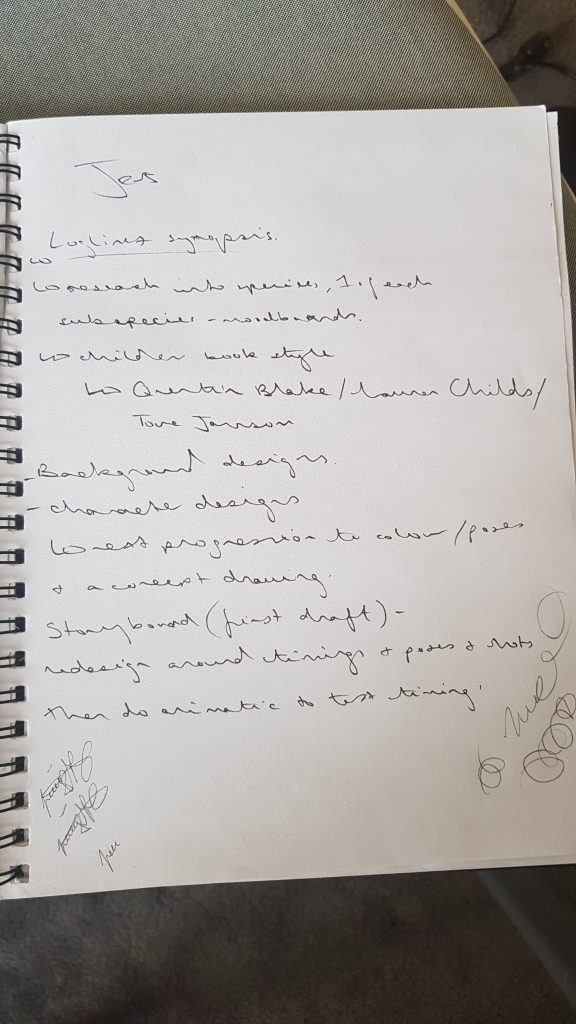 Jess
Loglines synopsis.
research into species, 1 of each
subspecies - moodboards.
children book style
Quentin Blake / Lauren Childs /
Tove Jansson
- Background designs.
- character designs
next progression to colour / poses
+ a concept drawing.
Storyboard (first draft) -
redesign around timings + poses + shots
then do animatic to test timing.